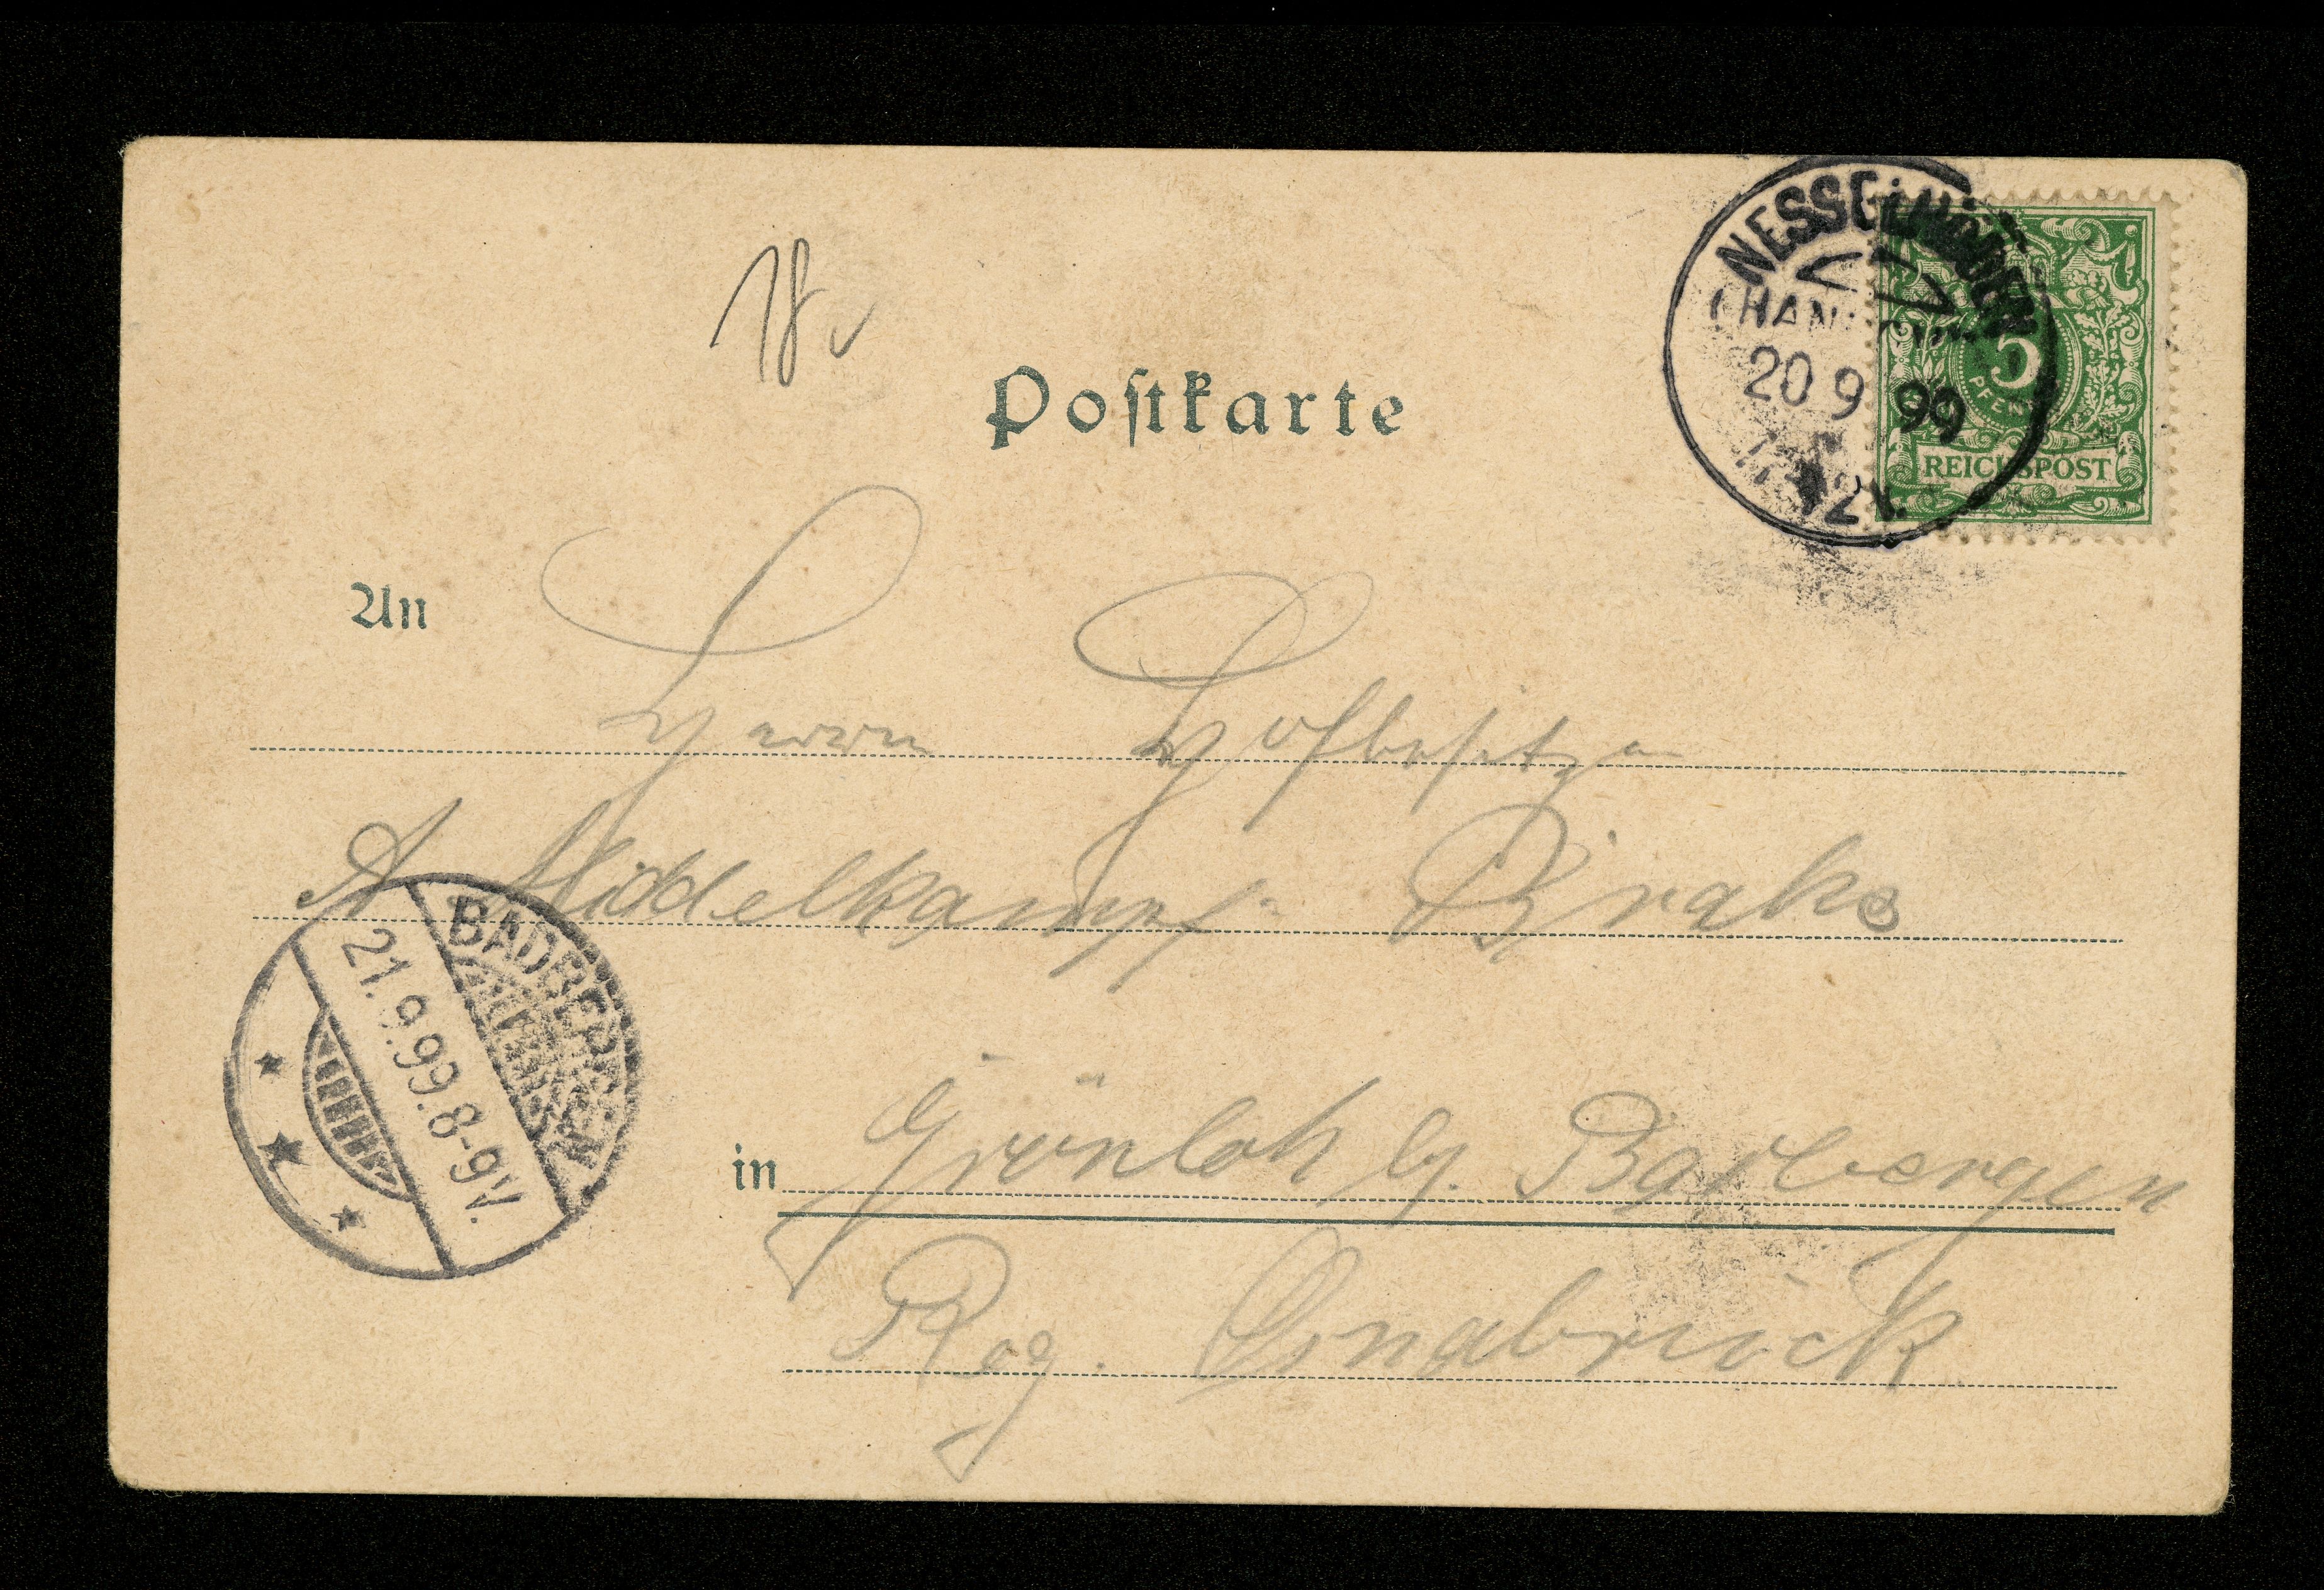 18
NESSELRÖDEN
20 9 99
5
PFENNIG
REICHSPOST
Postkarte
An
Herrn Hofbesitzer
A Middelkampf Brake
BADBERGEN
21.9.99.8-9V.
in Grönloh b. Badbergen
Reg. Osnabrück